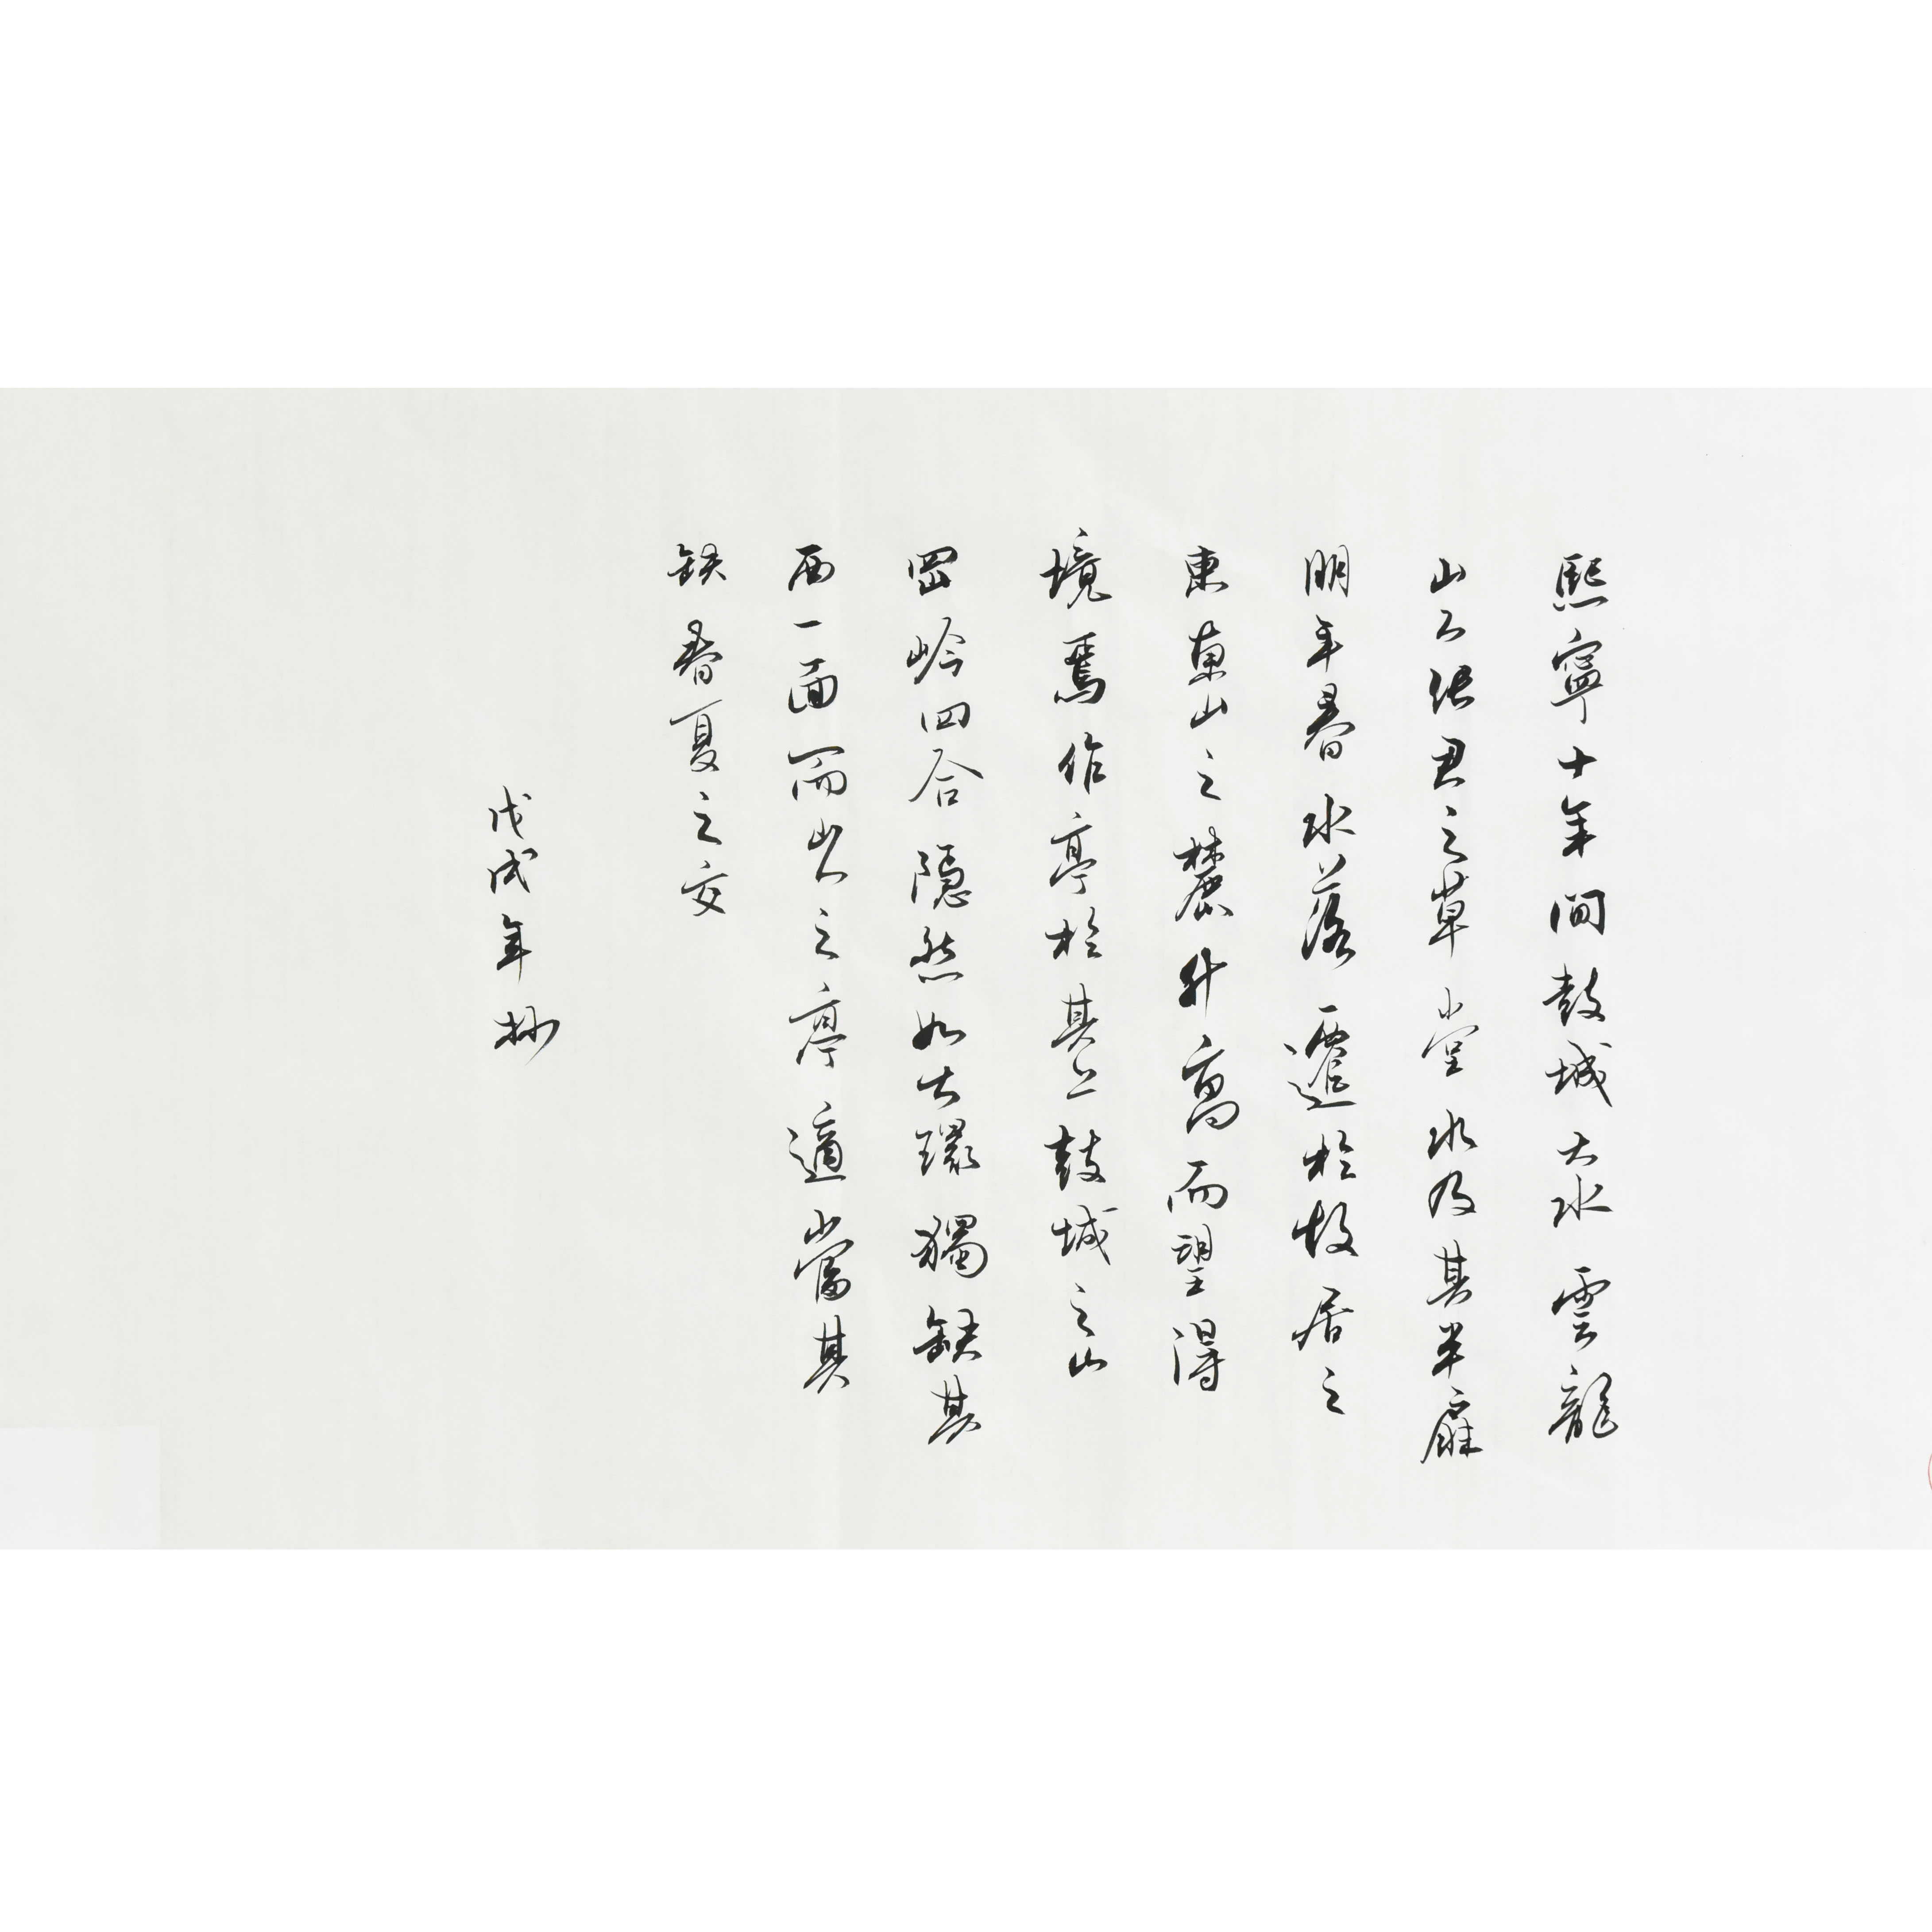 熙寧十年間鼓城大水雲龍
山人張君之草堂水及其半扉
明年春水落遷於故居之
東東山之麓升高而望得
境焉作亭於其上鼓城之山
岡岭四合隱然如大環獨缺其
西一面而山人之亭適當其
缺春夏之交
戊戌年抄